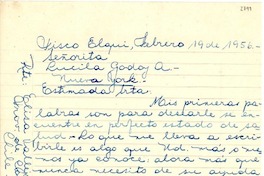 Pisco Elqui, Febrero 19 de 1956.-
Señorita
Lucila Godoy A.-
Nueva York.-
Estimada Srta.
Mis primeras pa-
labras son para desearle se en-
cuentre en perfecto estado de sa-
lud.- Lo que me lleva a escri-
birle es algo que Ud. más o me-
nos ya conoce, ahora más que
nunca necesito de su ayuda
Rte: Elisa
Chile